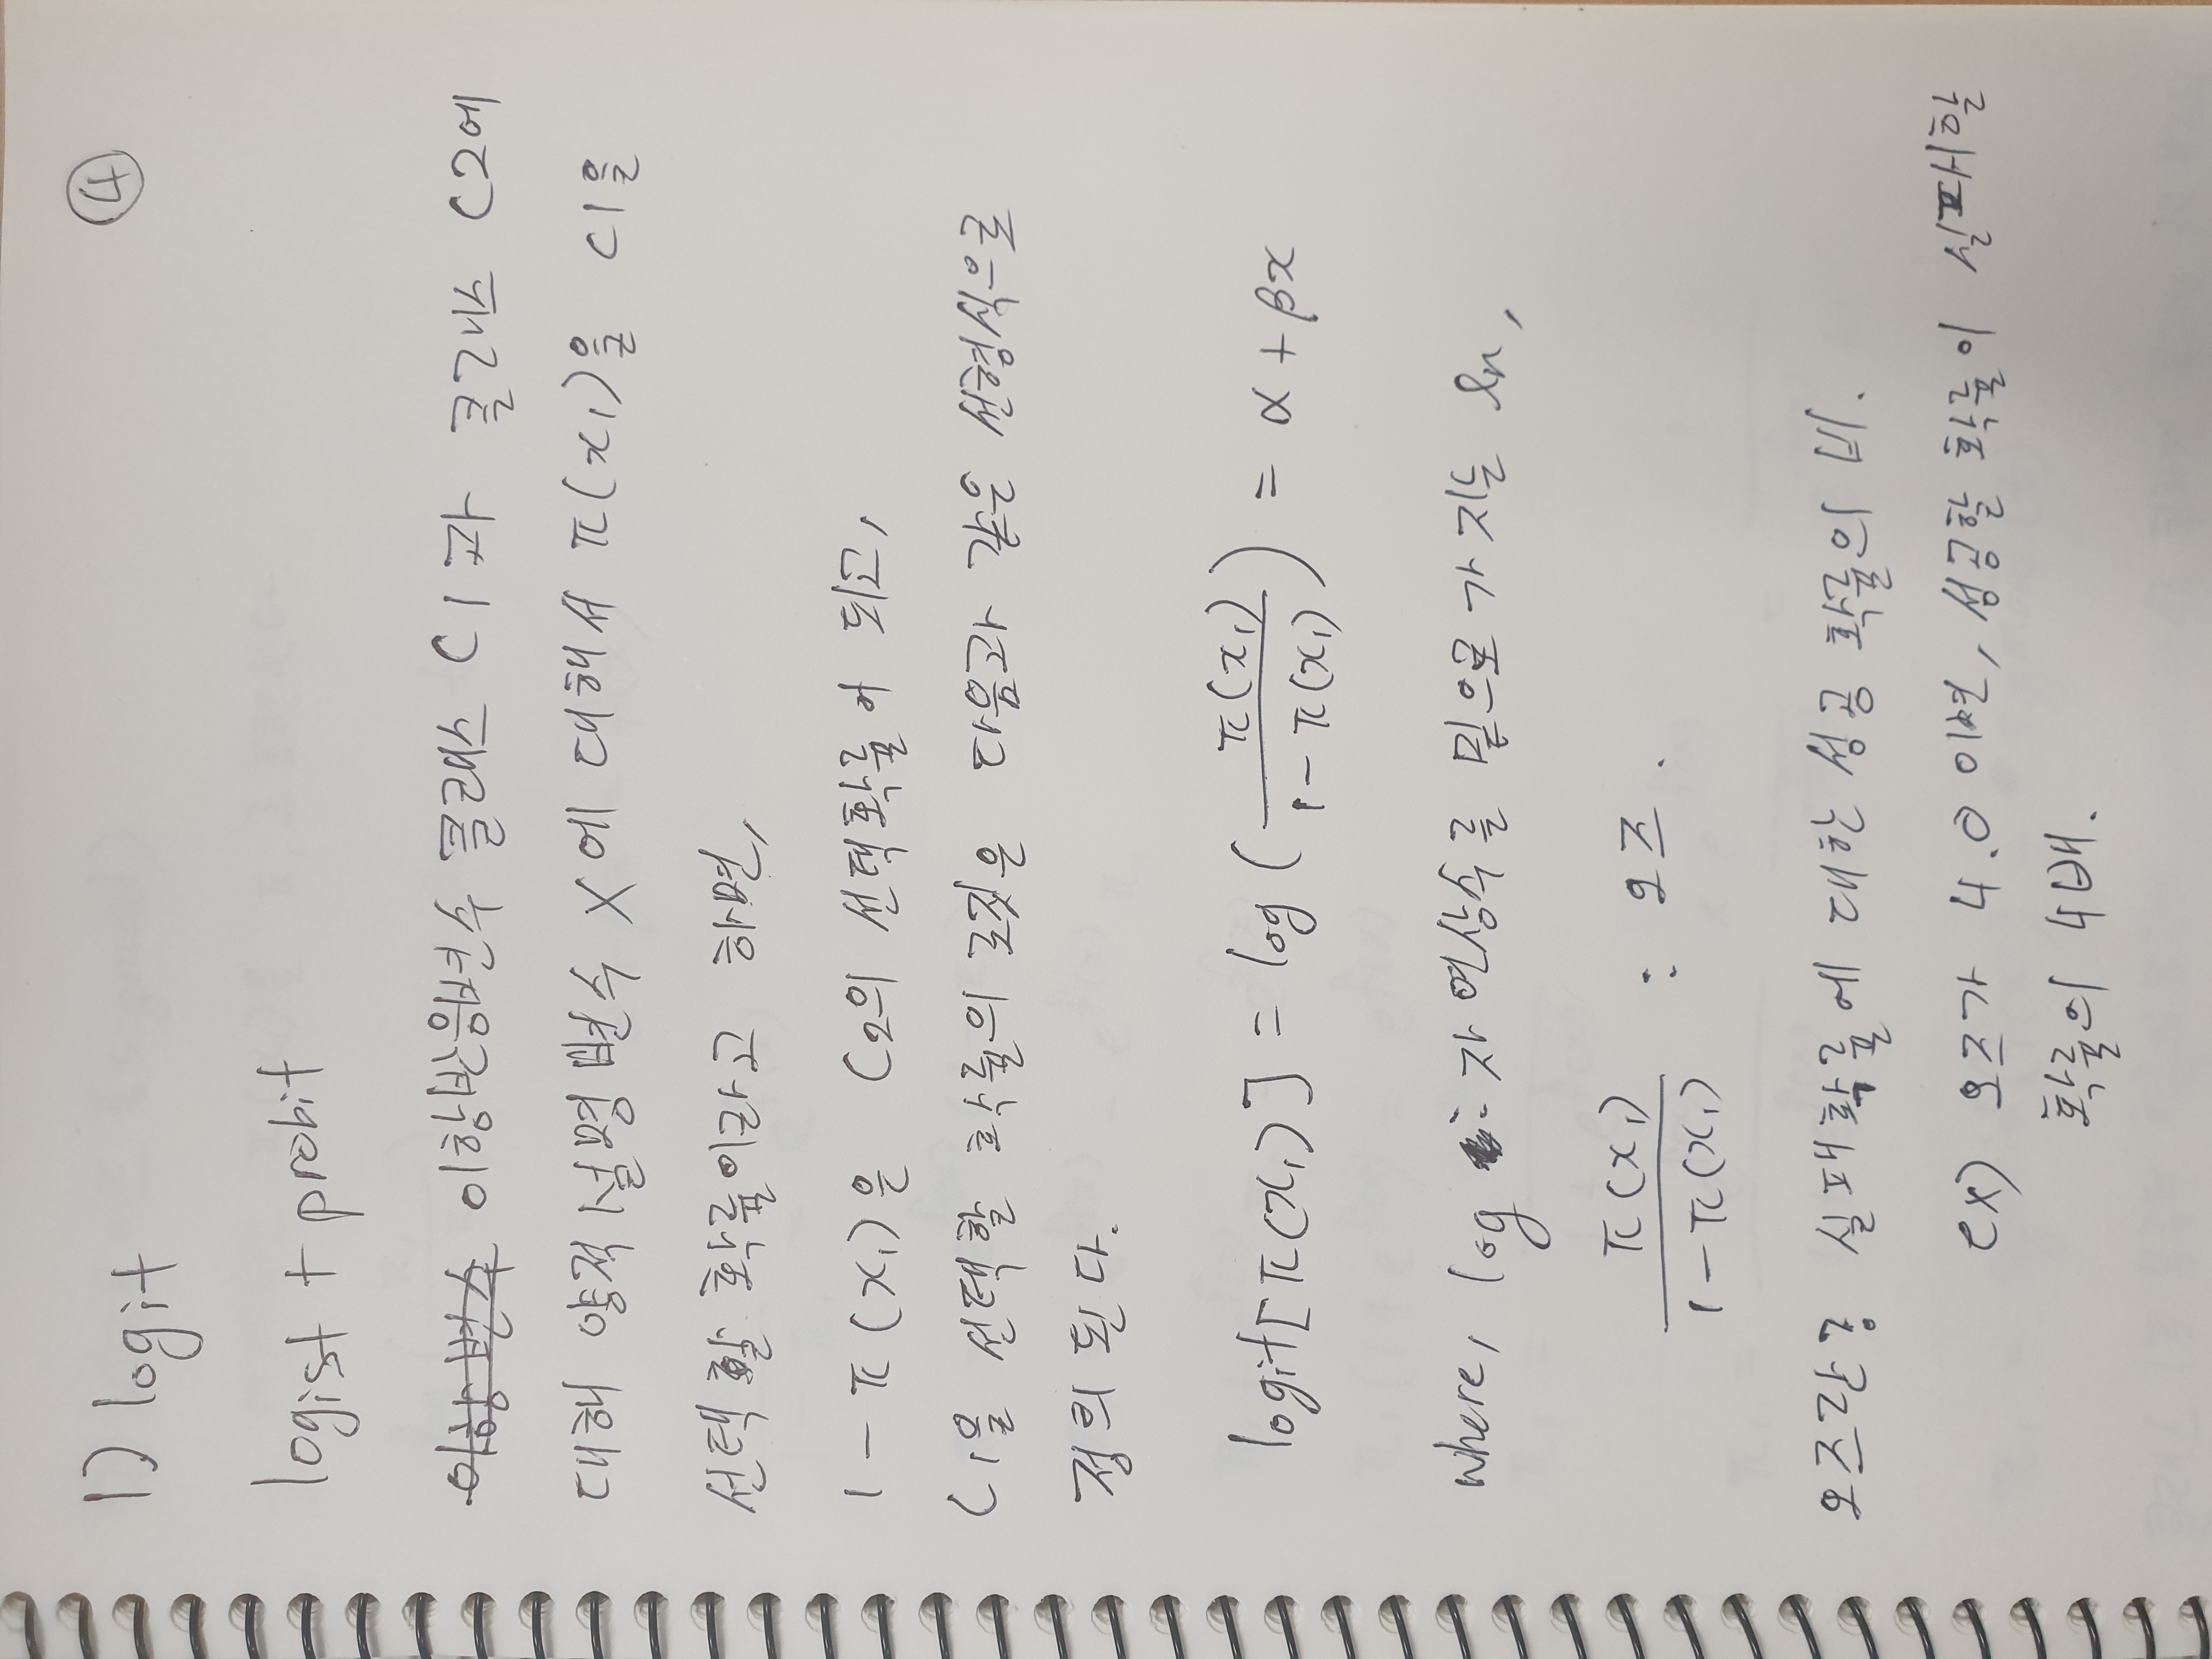 ④
1) logit
logist + probit
이항변수 이항반응변수 클래스 C1과 클래스 C2에
대해 양적 설명변수 X에 대해서 π(x₁)을 C1을
선택할 확률이라고 하면,
1 - π(x₁)은 C2의 선택확률이 되고,
C1을 선택할 확률의 로짓은 다음과 같은 선형식으로
정의 된다.
logit[π(x₁)] = log(π(x₁) / (1 - π(x₁))) = α + βx
where, log : 자연상수를 밑으로 가지는 ln,
π(x₁) / (1 - π(x₁)) : 오즈.
오즈란? 실패확률에 대한 성공 확률의 비.
ex) 오즈가 4.0 이면, 성공할 확률이 실패할
확률의 4배.